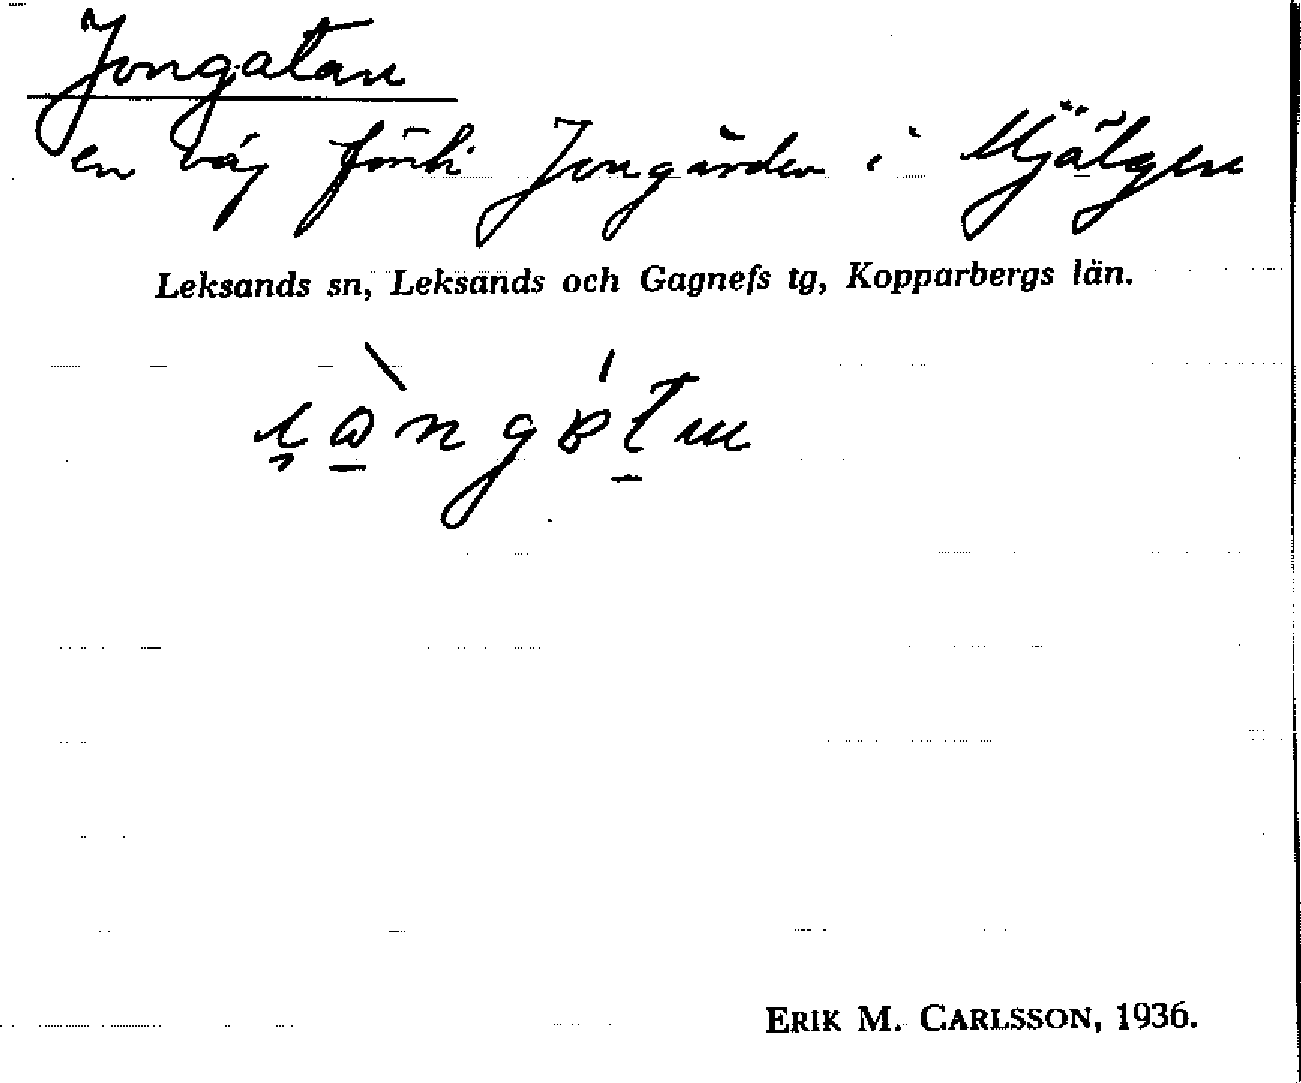 Jongatan
en väg förbi Jongården i Mjälgen
Leksands sn, Leksands och Gagnefs tg, Kopparbergs län.
ERIK M. CARLSSON, 1936.